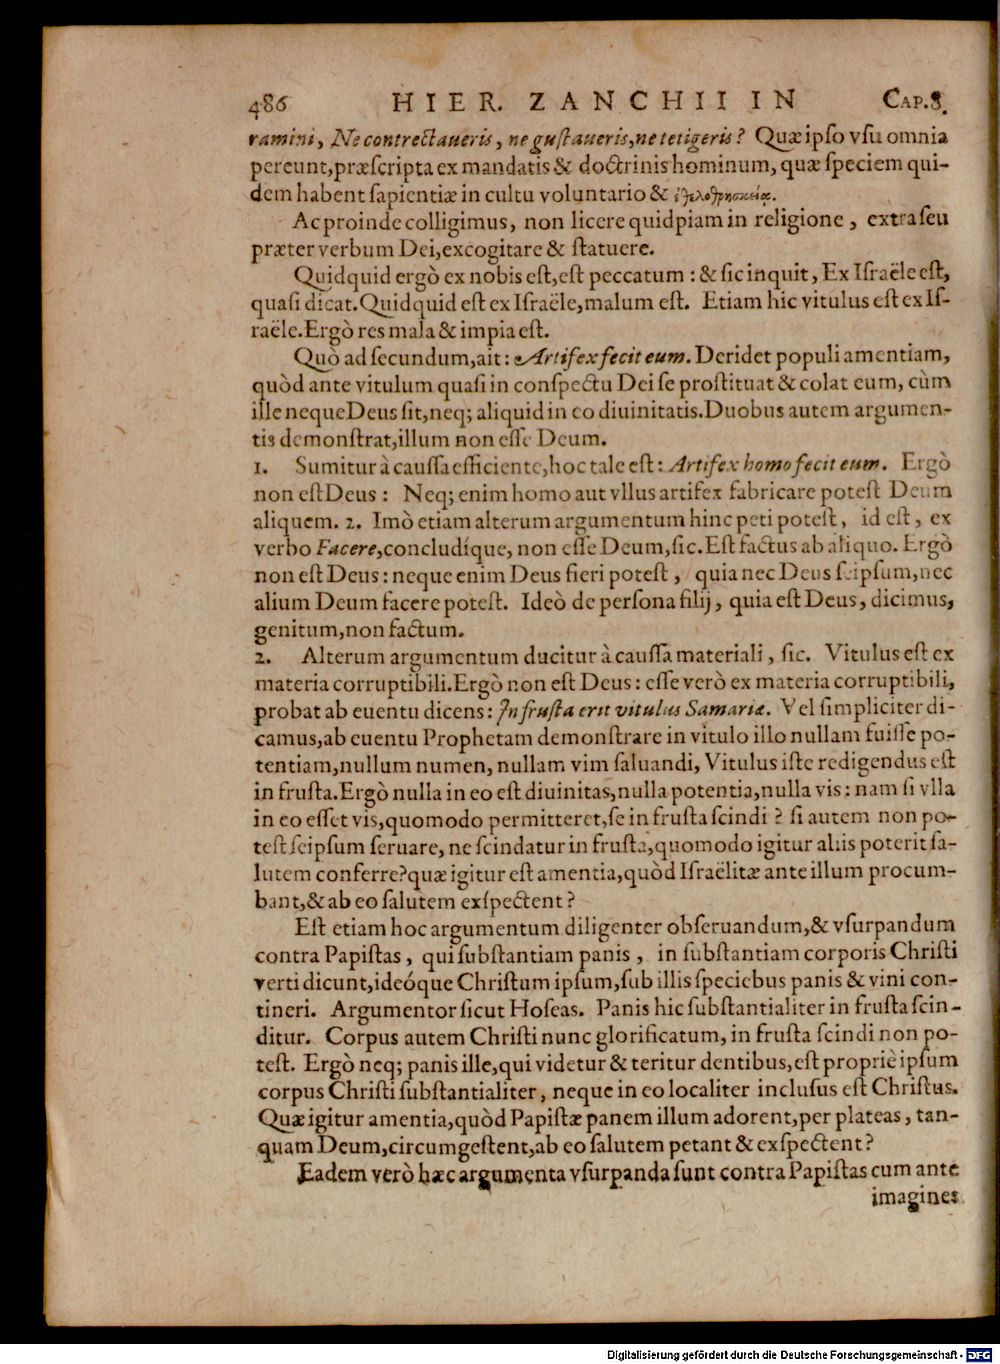 486 HIER. ZANCHII IN CAP.8.
ramini, Ne contrectaueris, ne gustaueris,ne tetigeris? Quæ ipso vsu omnia
pereunt,præscripta ex mandatis & doctrinis hominum, quæ speciem qui-
dem habent sapientiæ in cultu voluntario & ἐθελοθρησκείας.
Ac proinde colligimus, non licere quidpiam in religione, extra seu
præter verbum Dei,excogitare & statuere.
Quidquid ergò ex nobis est,est peccatum: & sic inquit, Ex Israële est,
quasi dicat.Quidquid est ex Israële,malum est. Etiam hic vitulus est ex Is-
raële.Ergò res mala & impia est.
Quò ad secundum,ait: Artifex fecit eum. Deridet populi amentiam,
quòd ante vitulum quasi in conspectu Dei se prostituat & colat eum, cùm
ille neque Deus sit,neq; aliquid in eo diuinitatis.Duobus autem argumen-
tis demonstrat,illum non esse Deum.
1. Sumitur à caussa efficiente,hoc tale est: Artifex homo fecit eum. Ergò
non est Deus: Neq; enim homo aut vllus artifex fabricare potest Deum
aliquem. 2. Imò etiam alterum argumentum hinc peti potest, id est, ex
verbo Facere,concludíque, non esse Deum,sic.Est factus ab aliquo. Ergò
non est Deus: neque enim Deus fieri potest, quia nec Deus seipsum,nec
alium Deum facere potest. Ideò de persona filij, quia est Deus, dicimus,
genitum,non factum.
2. Alterum argumentum ducitur à caussa materiali, sic. Vitulus est ex
materia corruptibili.Ergò non est Deus: esse verò ex materia corruptibili,
probat ab euentu dicens: In frusta erit vitulus Samariæ. Vel simpliciter di-
camus,ab euentu Prophetam demonstrare in vitulo illo nullam fuisse po-
tentiam,nullum numen, nullam vim saluandi, Vitulus iste redigendus est
in frusta.Ergò nulla in eo est diuinitas,nulla potentia,nulla vis: nam si vlla
in eo esset vis,quomodo permitteret,se in frusta scindi? si autem non po-
test seipsum seruare, ne scindatur in frusta,quomodo igitur aliis poterit sa-
lutem conferre?quæ igitur est amentia,quòd Israëlitæ ante illum procum-
bant,& ab eo salutem exspectent?
Est etiam hoc argumentum diligenter obseruandum,& vsurpandum
contra Papistas, qui substantiam panis, in substantiam corporis Christi
verti dicunt,ideóque Christum ipsum,sub illis speciebus panis & vini con-
tineri. Argumentor sicut Hoseas. Panis hic substantialiter in frusta scin-
ditur. Corpus autem Christi nunc glorificatum, in frusta scindi non po-
test. Ergò neq; panis ille,qui videtur & teritur dentibus,est propriè ipsum
corpus Christi substantialiter, neque in eo localiter inclusus est Christus.
Quæ igitur amentia,quòd Papistæ panem illum adorent,per plateas, tan-
quam Deum,circumgestent,ab eo salutem petant & exspectent?
Eadem verò hæc argumenta vsurpanda sunt contra Papistas cum ante
imagines
Digitalisierung gefördert durch die Deutsche Forschungsgemeinschaft - DFG